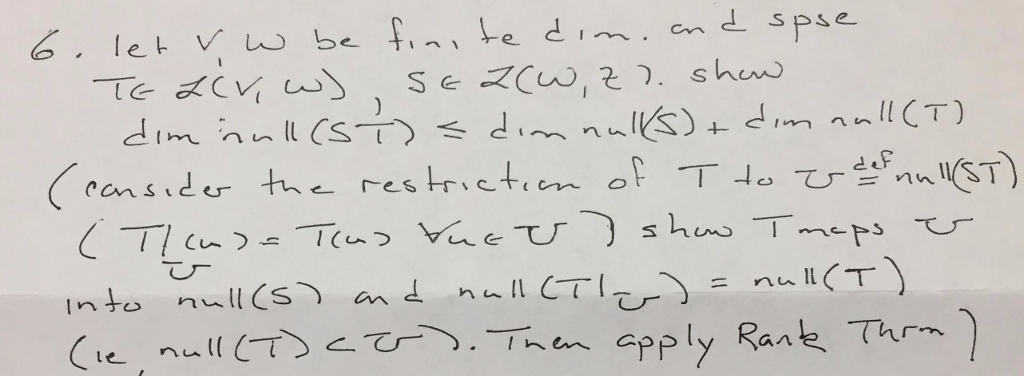 6. let V, W be finite dim. and spse
T∈ ℒ(V, W), S∈ ℒ(W, Z). show
dim null(ST) ≤ dim null(S) + dim null(T)
(consider the restriction of T to U def= null(ST)
(T|_U(u) = T(u) ∀u∈U) show T maps U
into null(S) and null(T|_U) = null(T)
(ie, null(T) ⊂ U). Then apply Rank Thrm)